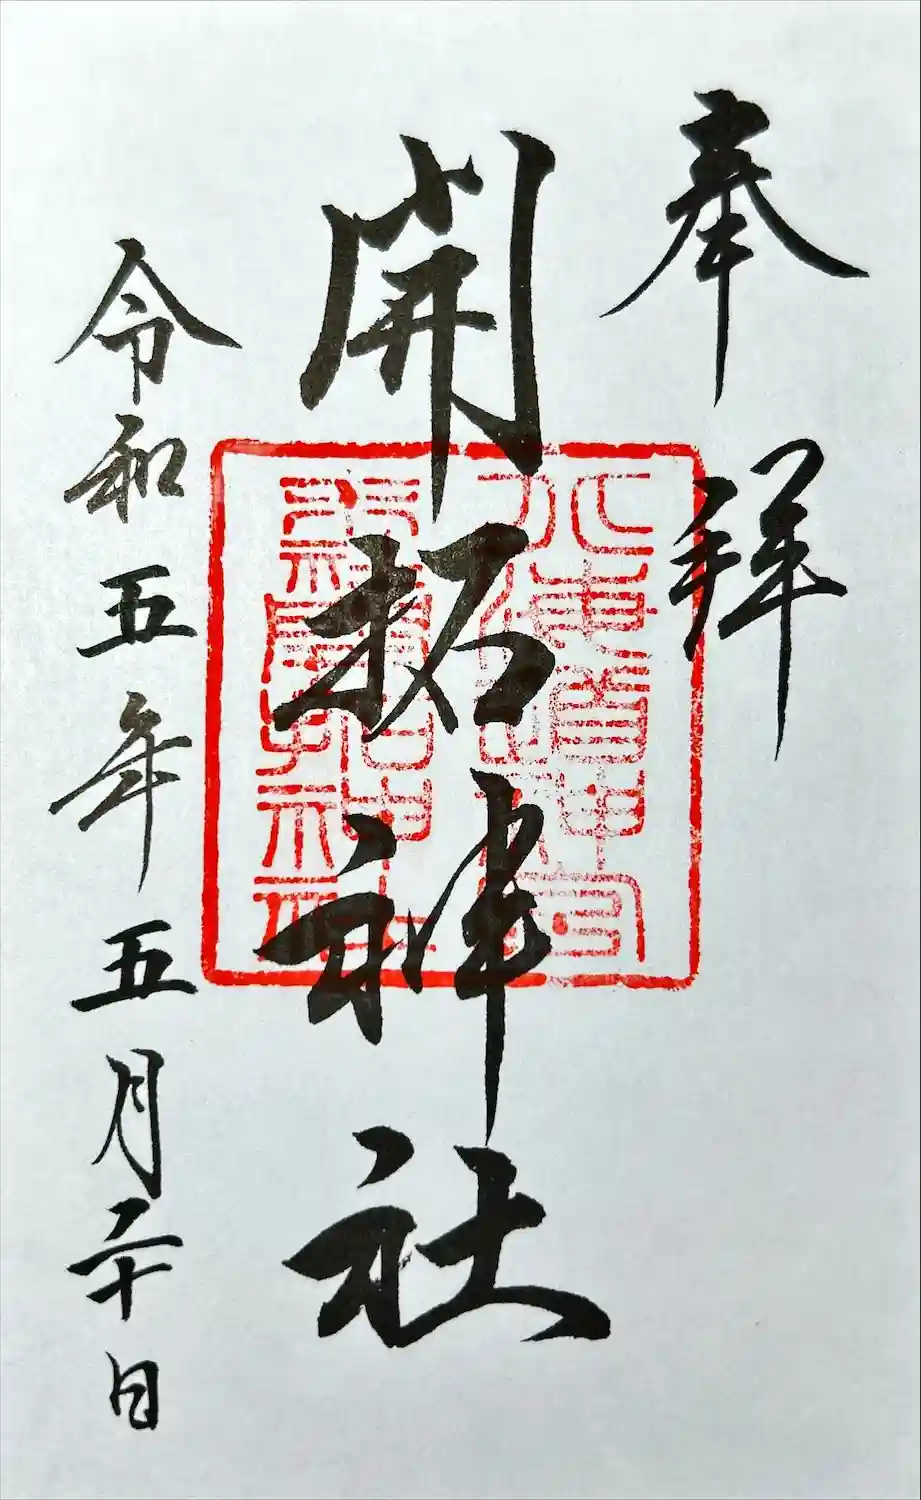 奉拝
開拓神社
北海道神宮
末社開拓神社
令和五年五月二十日